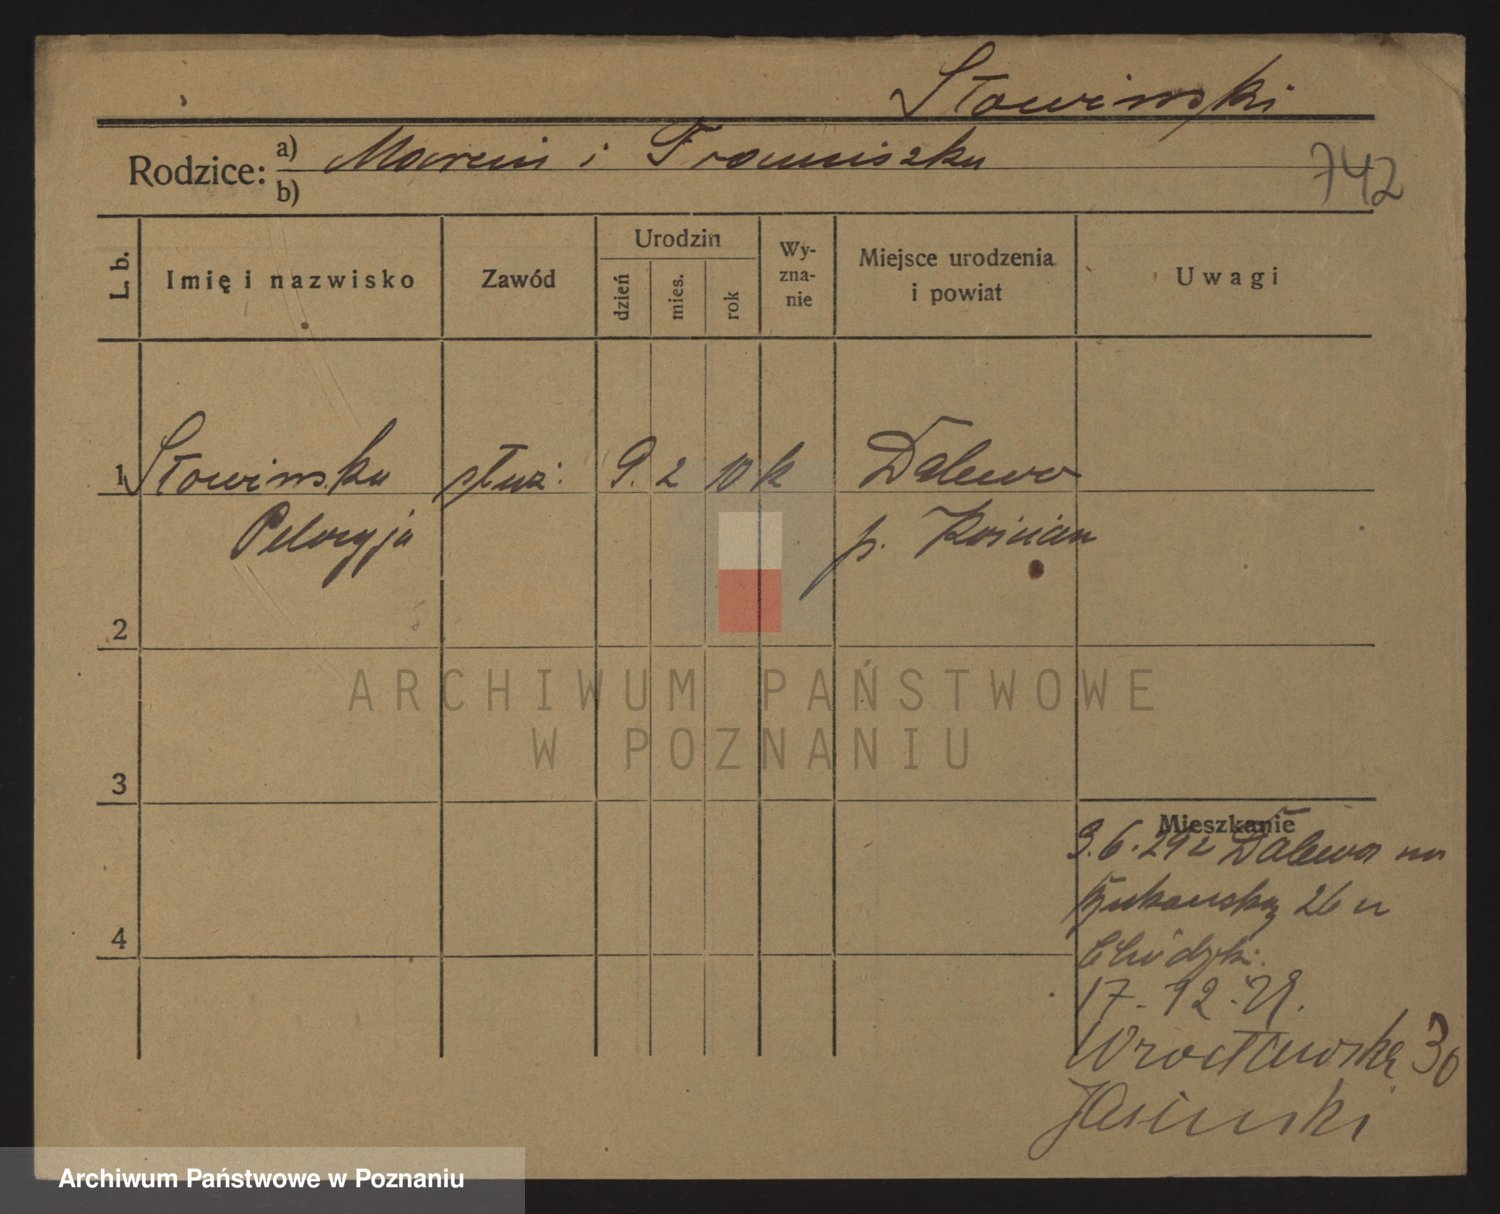 Słowinski
Rodzice: a) Marcin i Franciszka
b)
742
L. b.
Imię i nazwisko
Zawód
Urodzin
dzień
mies.
rok
Wy-
zna-
nie
Miejsce urodzenia
i powiat
Uwagi
1 Słowinska służ. 9. 2 10 k Dalewo
Pelagja p. Kościan
2
ARCHIWUM PAŃSTWOWE
W POZNANIU
3
Mieszkanie
3.6.29 z Dalewa na
26 u
4
17-12-29.
Wrocławska 30
Jasinski
Archiwum Państwowe w Poznaniu